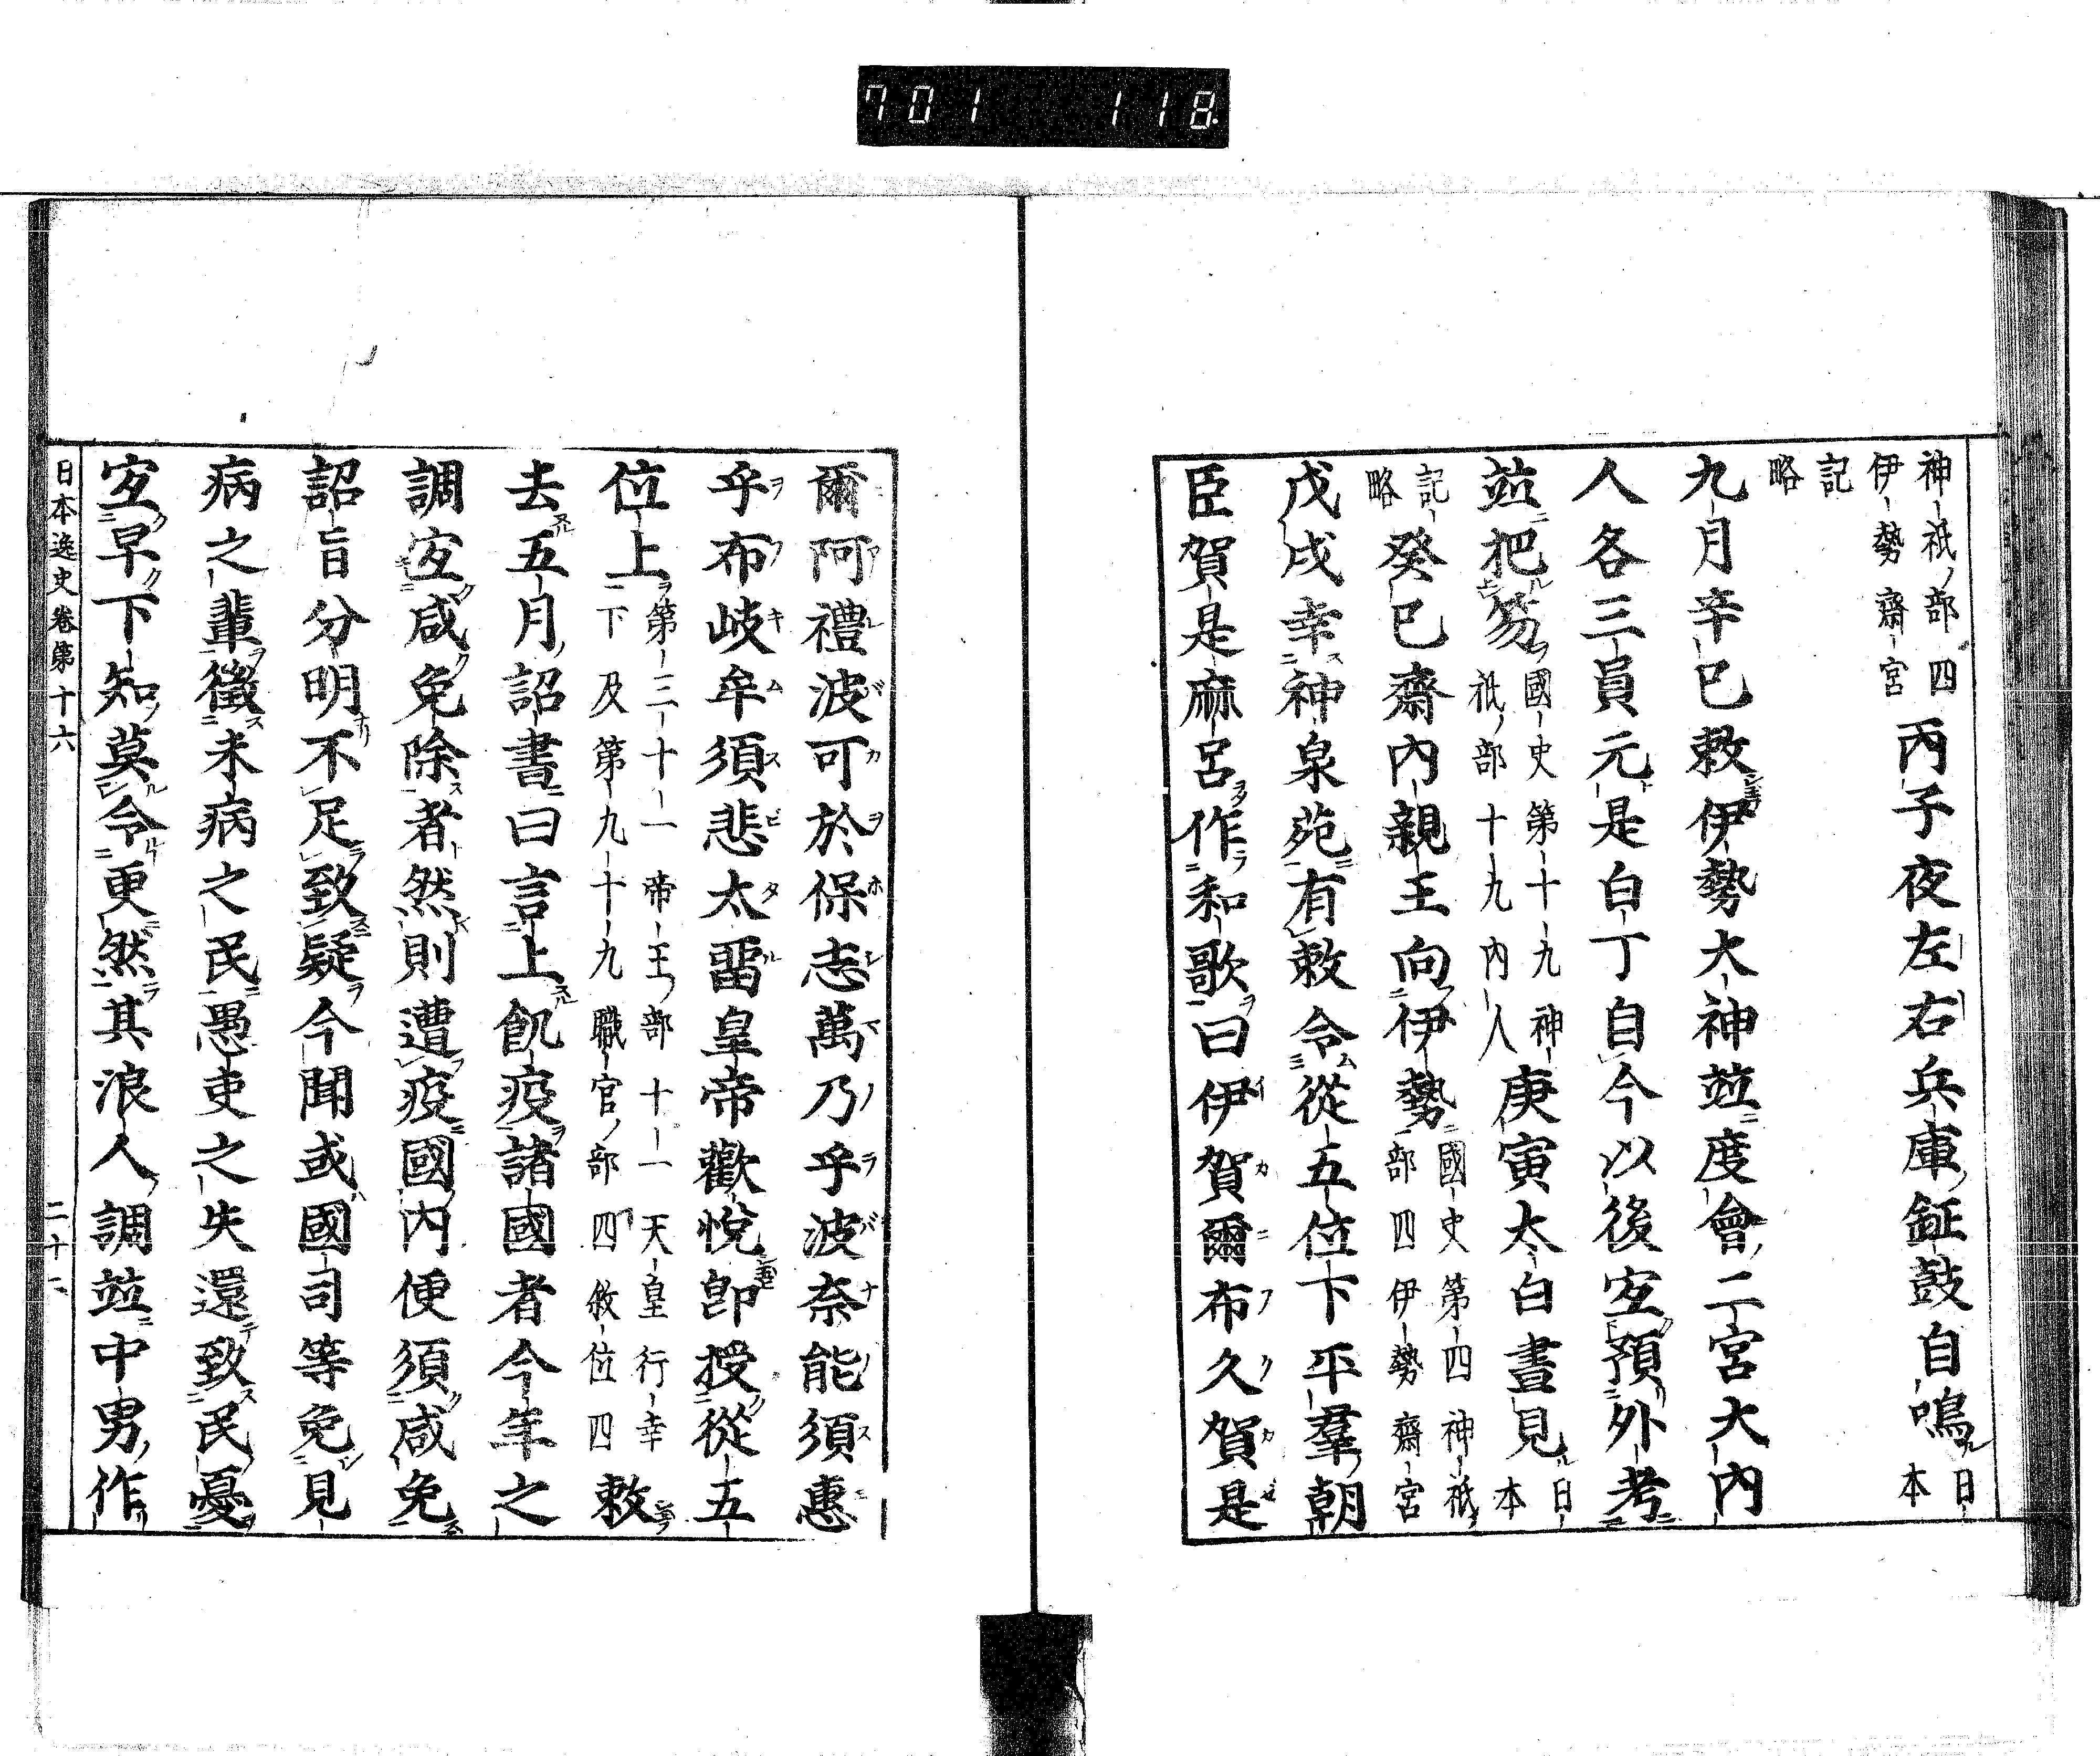 701 118
神祇部四
伊勢齋宮
丙子夜左右兵庫鉦鼓自鳴
日
本
記
略
九月辛巳敕伊勢大神竝度會二宮大內
人各三員元是白丁自今以後宐預外考
竝把笏
國史第十九神
祇部十九內人
庚寅太白晝見
日
本
記
略
癸巳齋內親王向伊勢
國史第四神祇
部四伊勢齋宮
戊戌幸神泉苑有敕令從五位下平羣朝
臣賀是麻呂作和歌曰伊賀爾布久賀是
爾阿禮波可於保志萬乃乎波奈能須惠
乎布岐牟須悲太留皇帝歡悅卽授從五
位上
第三十一帝王部十一天皇行幸
下及第九十九職官部四敘位四
敕
去五月詔書曰言上飢疫諸國者今年之
調宐咸免除者然則遭疫國內便須咸免
詔旨分明不足致疑今聞或國司等免見
病之輩徵未病之民愚吏之失還致民憂
宐早下知莫令更然其浪人調竝中男作
日本逸史卷第十六
二十一